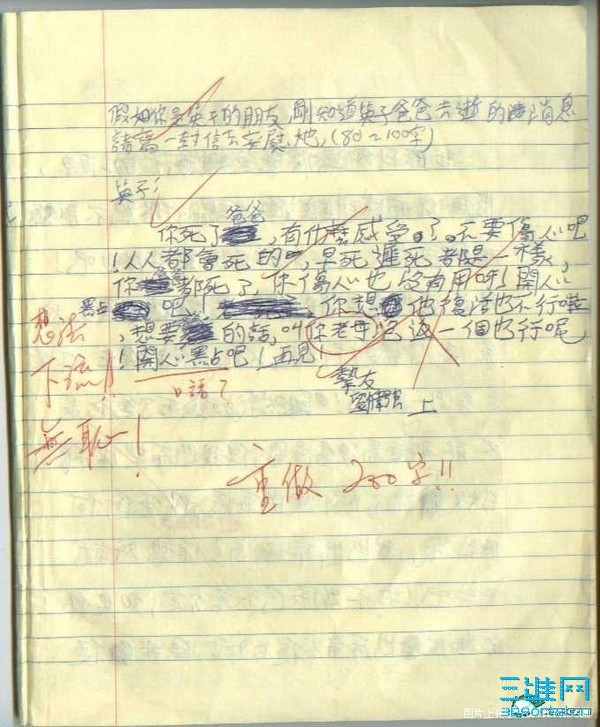 假如你是英子的朋友,剛知道英子爸爸去逝的消息
請寫一封信去安慰她,(80~100字)
英子:
爸爸
你死了,有什麼感受。了。不要傷心吧
!人人都會死的,早死遲死都是一樣,
爸爸
你都死了,你傷心也沒有用呀!開心
黑占吧,你想他復活也不行啦
,想要的話,叫你老母它返一個也行呢
!開心黑占吧!再見
摯友
劉 上
想法
下流!!
無恥!
口語?
重做 200字!!
三維网